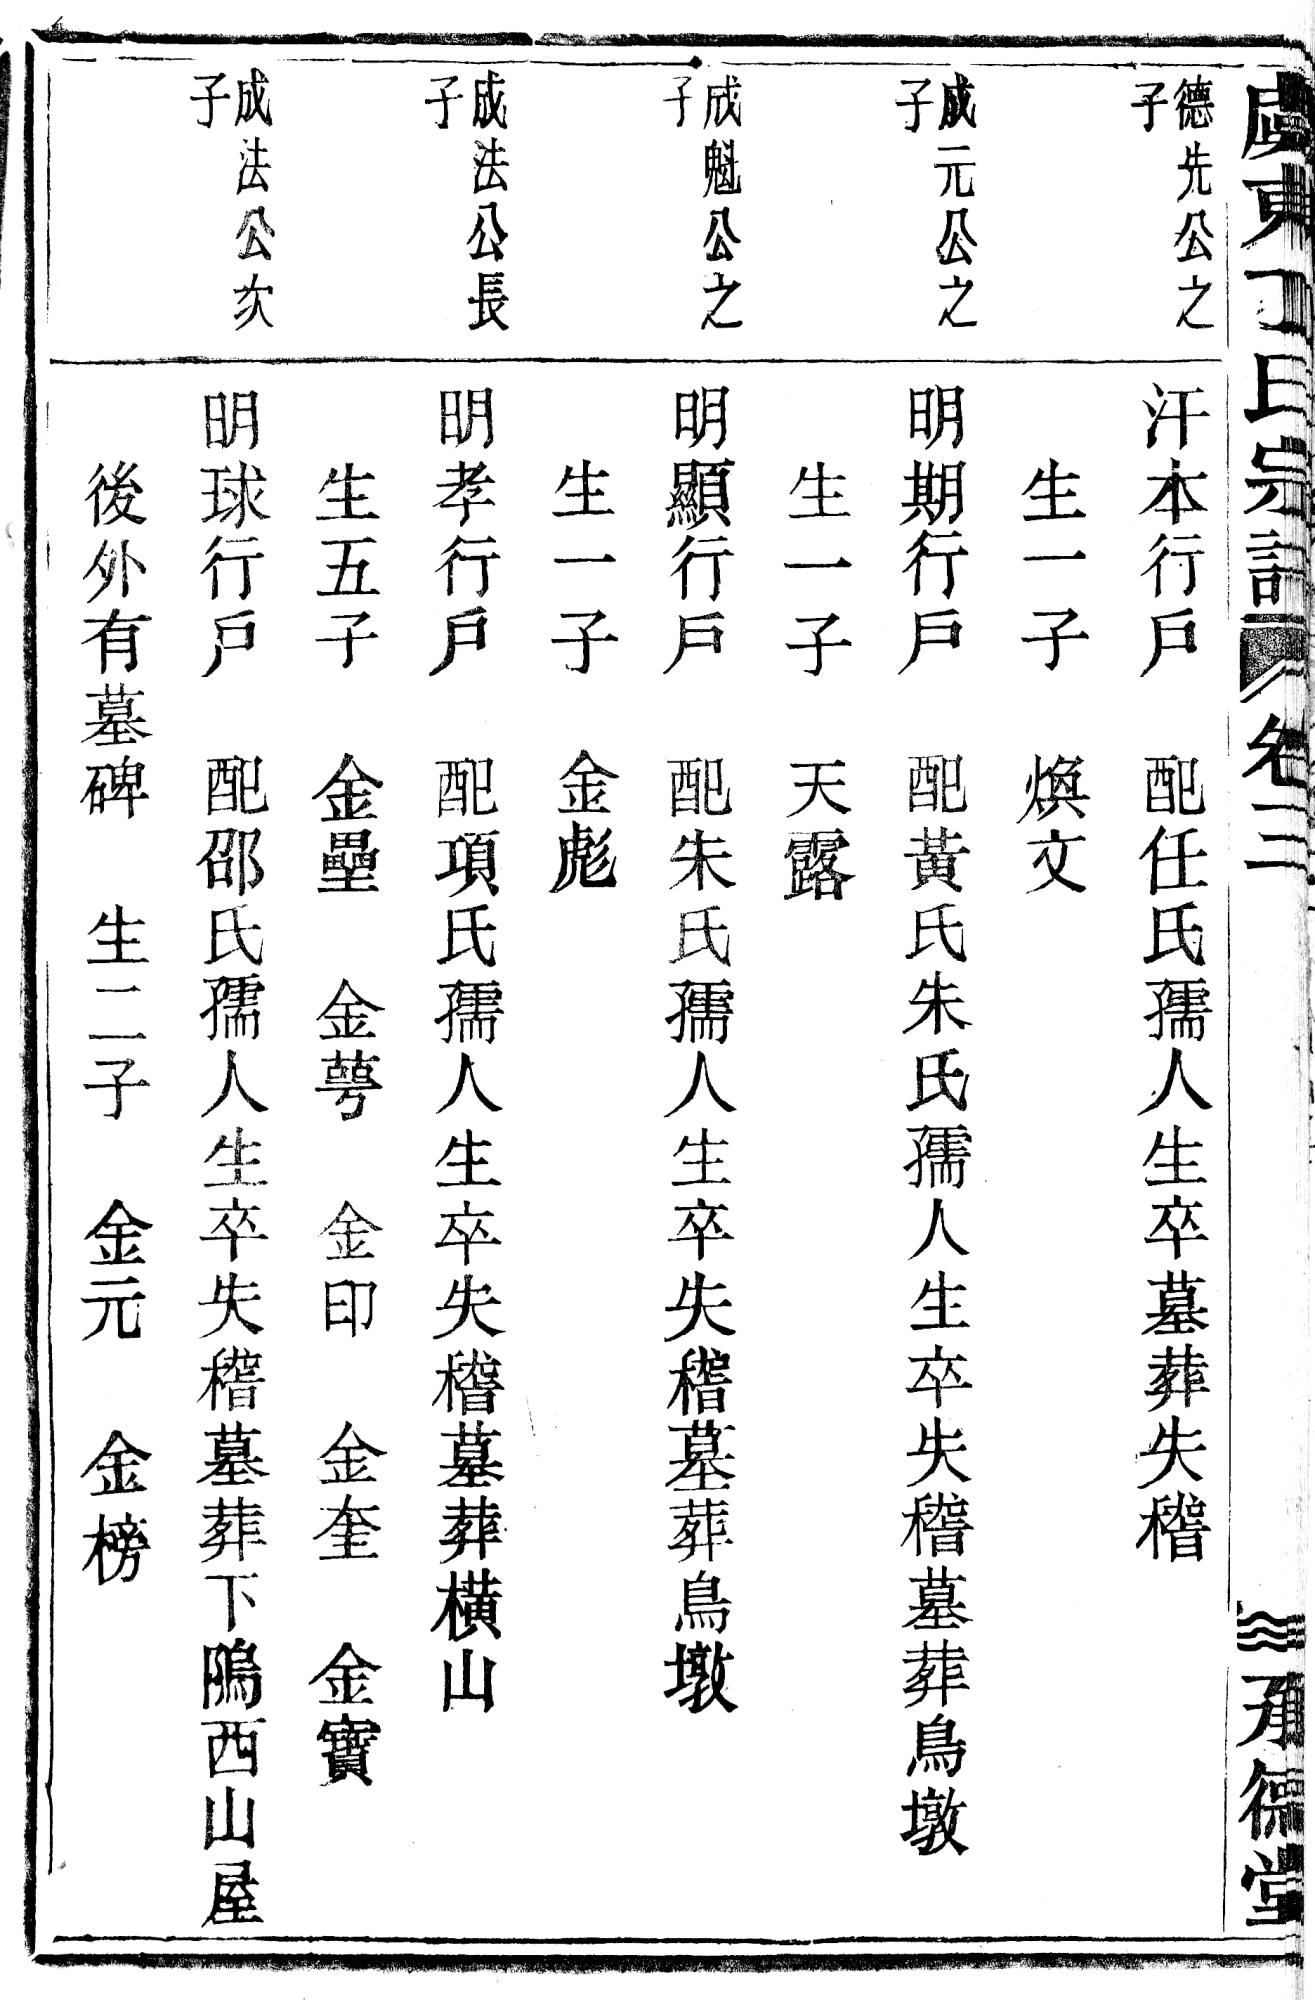 虞東丁氏宗譜 卷二 承德堂
德先公之
子
汗本行戶 配任氏孺人生卒墓葬失稽
生一子 煥文
成元公之
子
明期行戶 配黃氏朱氏孺人生卒失稽墓葬鳥墩
生一子 天露
成魁公之
子
明顯行戶 配朱氏孺人生卒失稽墓葬鳥墩
生一子 金彪
成法公長
子
明孝行戶 配項氏孺人生卒失稽墓葬橫山
生五子 金壘 金萼 金印 金奎 金寶
成法公次
子
明球行戶 配邵氏孺人生卒失稽墓葬下隝西山屋
後外有墓碑 生二子 金元 金榜